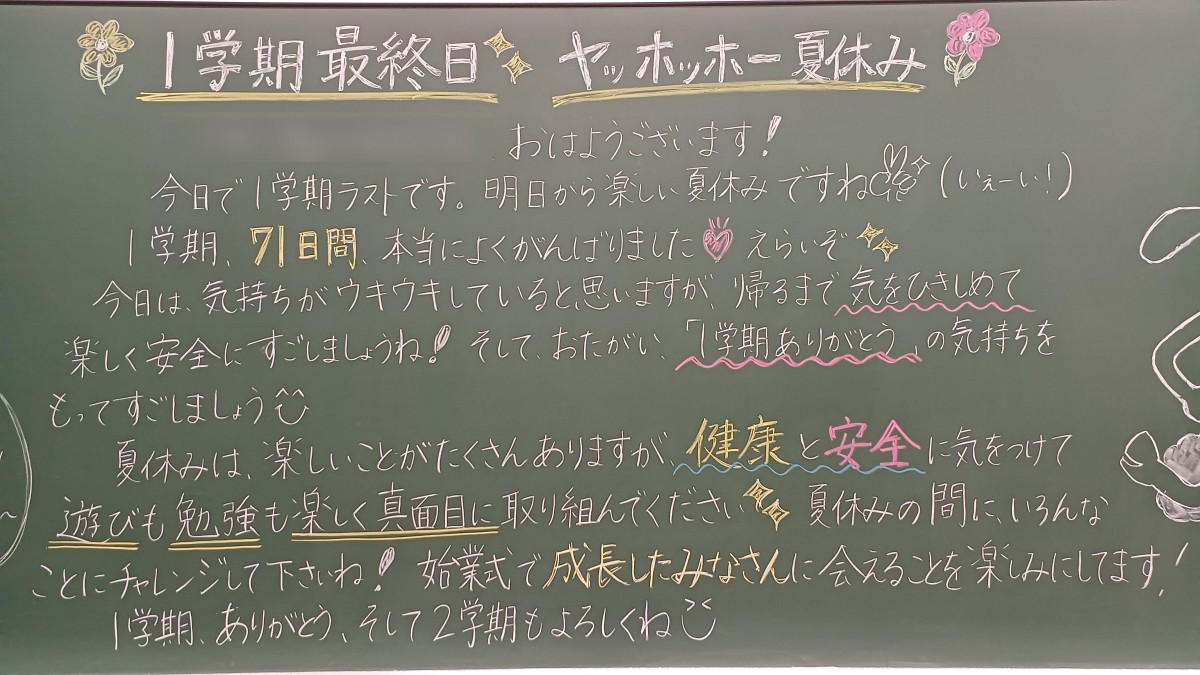 1学期最終日 ヤッホッホー夏休み
おはようございます!
今日で1学期ラストです。明日から楽しい夏休みですね(いぇーい!)
1学期、71日間、本当によくがんばりました えらいぞ
今日は、気持ちがウキウキしていると思いますが、帰るまで気をひきしめて
楽しく安全にすごしましょうね! そして、おたがい、「1学期ありがとう」の気持ちを
もってすごしましょう
夏休みは、楽しいことがたくさんありますが、健康と安全に気をつけて
遊びも勉強も楽しく真面目に取り組んでください 夏休みの間に、いろんな
ことにチャレンジして下さいね! 始業式で成長したみなさんに会えることを楽しみにしてます!
1学期、ありがとう、そして2学期もよろしくね